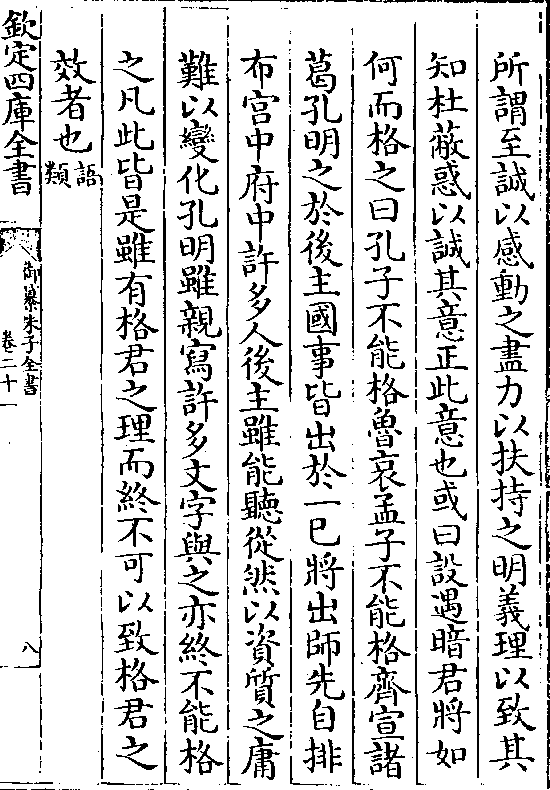 所謂至誠以感動之盡力以扶持之明義理以致其
知杜蔽惑以誠其意正此意也或曰設遇暗君將如
何而格之曰孔子不能格魯哀孟子不能格齊宣諸
葛孔明之於後主國事皆出於一已將出師先自排
布宫中府中許多人後主雖能聽從然以資質之庸
難以變化孔明雖親寫許多文字與之亦終不能格
之凡此皆是雖有格君之理而終不可以致格君之
效者也語類
欽定四庫全書
御纂朱子全書
卷二十一
八